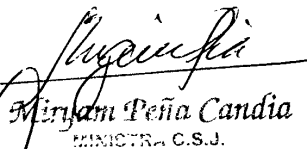 Miryam Peña Candia
MINISTRA C.S.J.